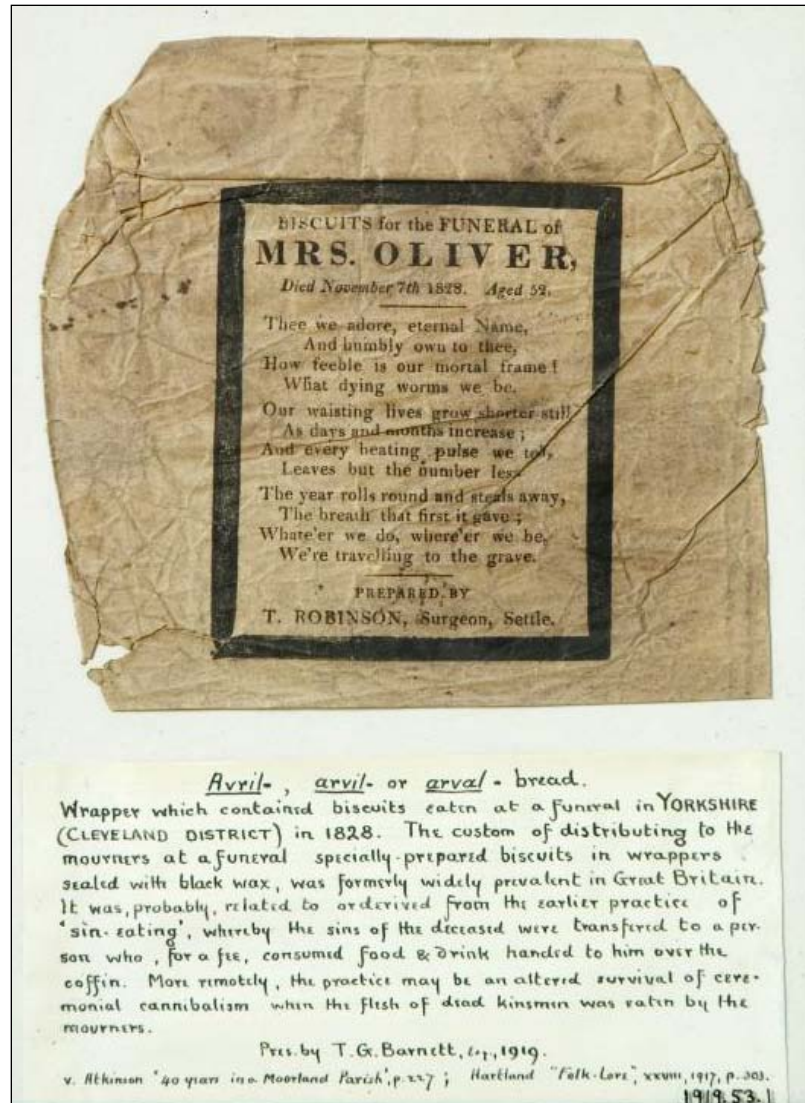 BISCUITS for the FUNERAL of
MRS. OLIVER,
Died November 7th 1828. Aged 52.
Thee we adore, eternal Name,
And humbly own to thee,
How feeble is our mortal frame!
What dying worms we be.
Our waisting lives grow shorter still
As days and months increase;
And every beating pulse we tell,
Leaves but the number less
The year rolls round and steals away,
The breath that first it gave;
Whate'er we do, where'er we be,
We're travelling to the grave.
PREPARED BY
T. ROBINSON, Surgeon, Settle.
Avril-, arvil- or arval-bread.
Wrapper which contained biscuits eaten at a funeral in YORKSHIRE
(CLEVELAND DISTRICT) in 1828. The custom of distributing to the
mourners at a funeral specially-prepared biscuits in wrappers
sealed with black wax, was formerly widely prevalent in Great Britain.
It was, probably, related to or derived from the earlier practice of
'sin-eating', whereby the sins of the deceased were transferred to a per-
son who, for a fee, consumed food & drink handed to him over the
coffin. More remotely, the practice may be an altered survival of cere-
monial cannibalism when the flesh of dead kinsmen was eaten by the
mourners.
Pres. by T.G. Barnett, Esq., 1919.
v. Atkinson '40 years in a Moorland Parish', p.227; Hartland "Folk-Lore", xxviii, 1917, p.303.
1919.53.1